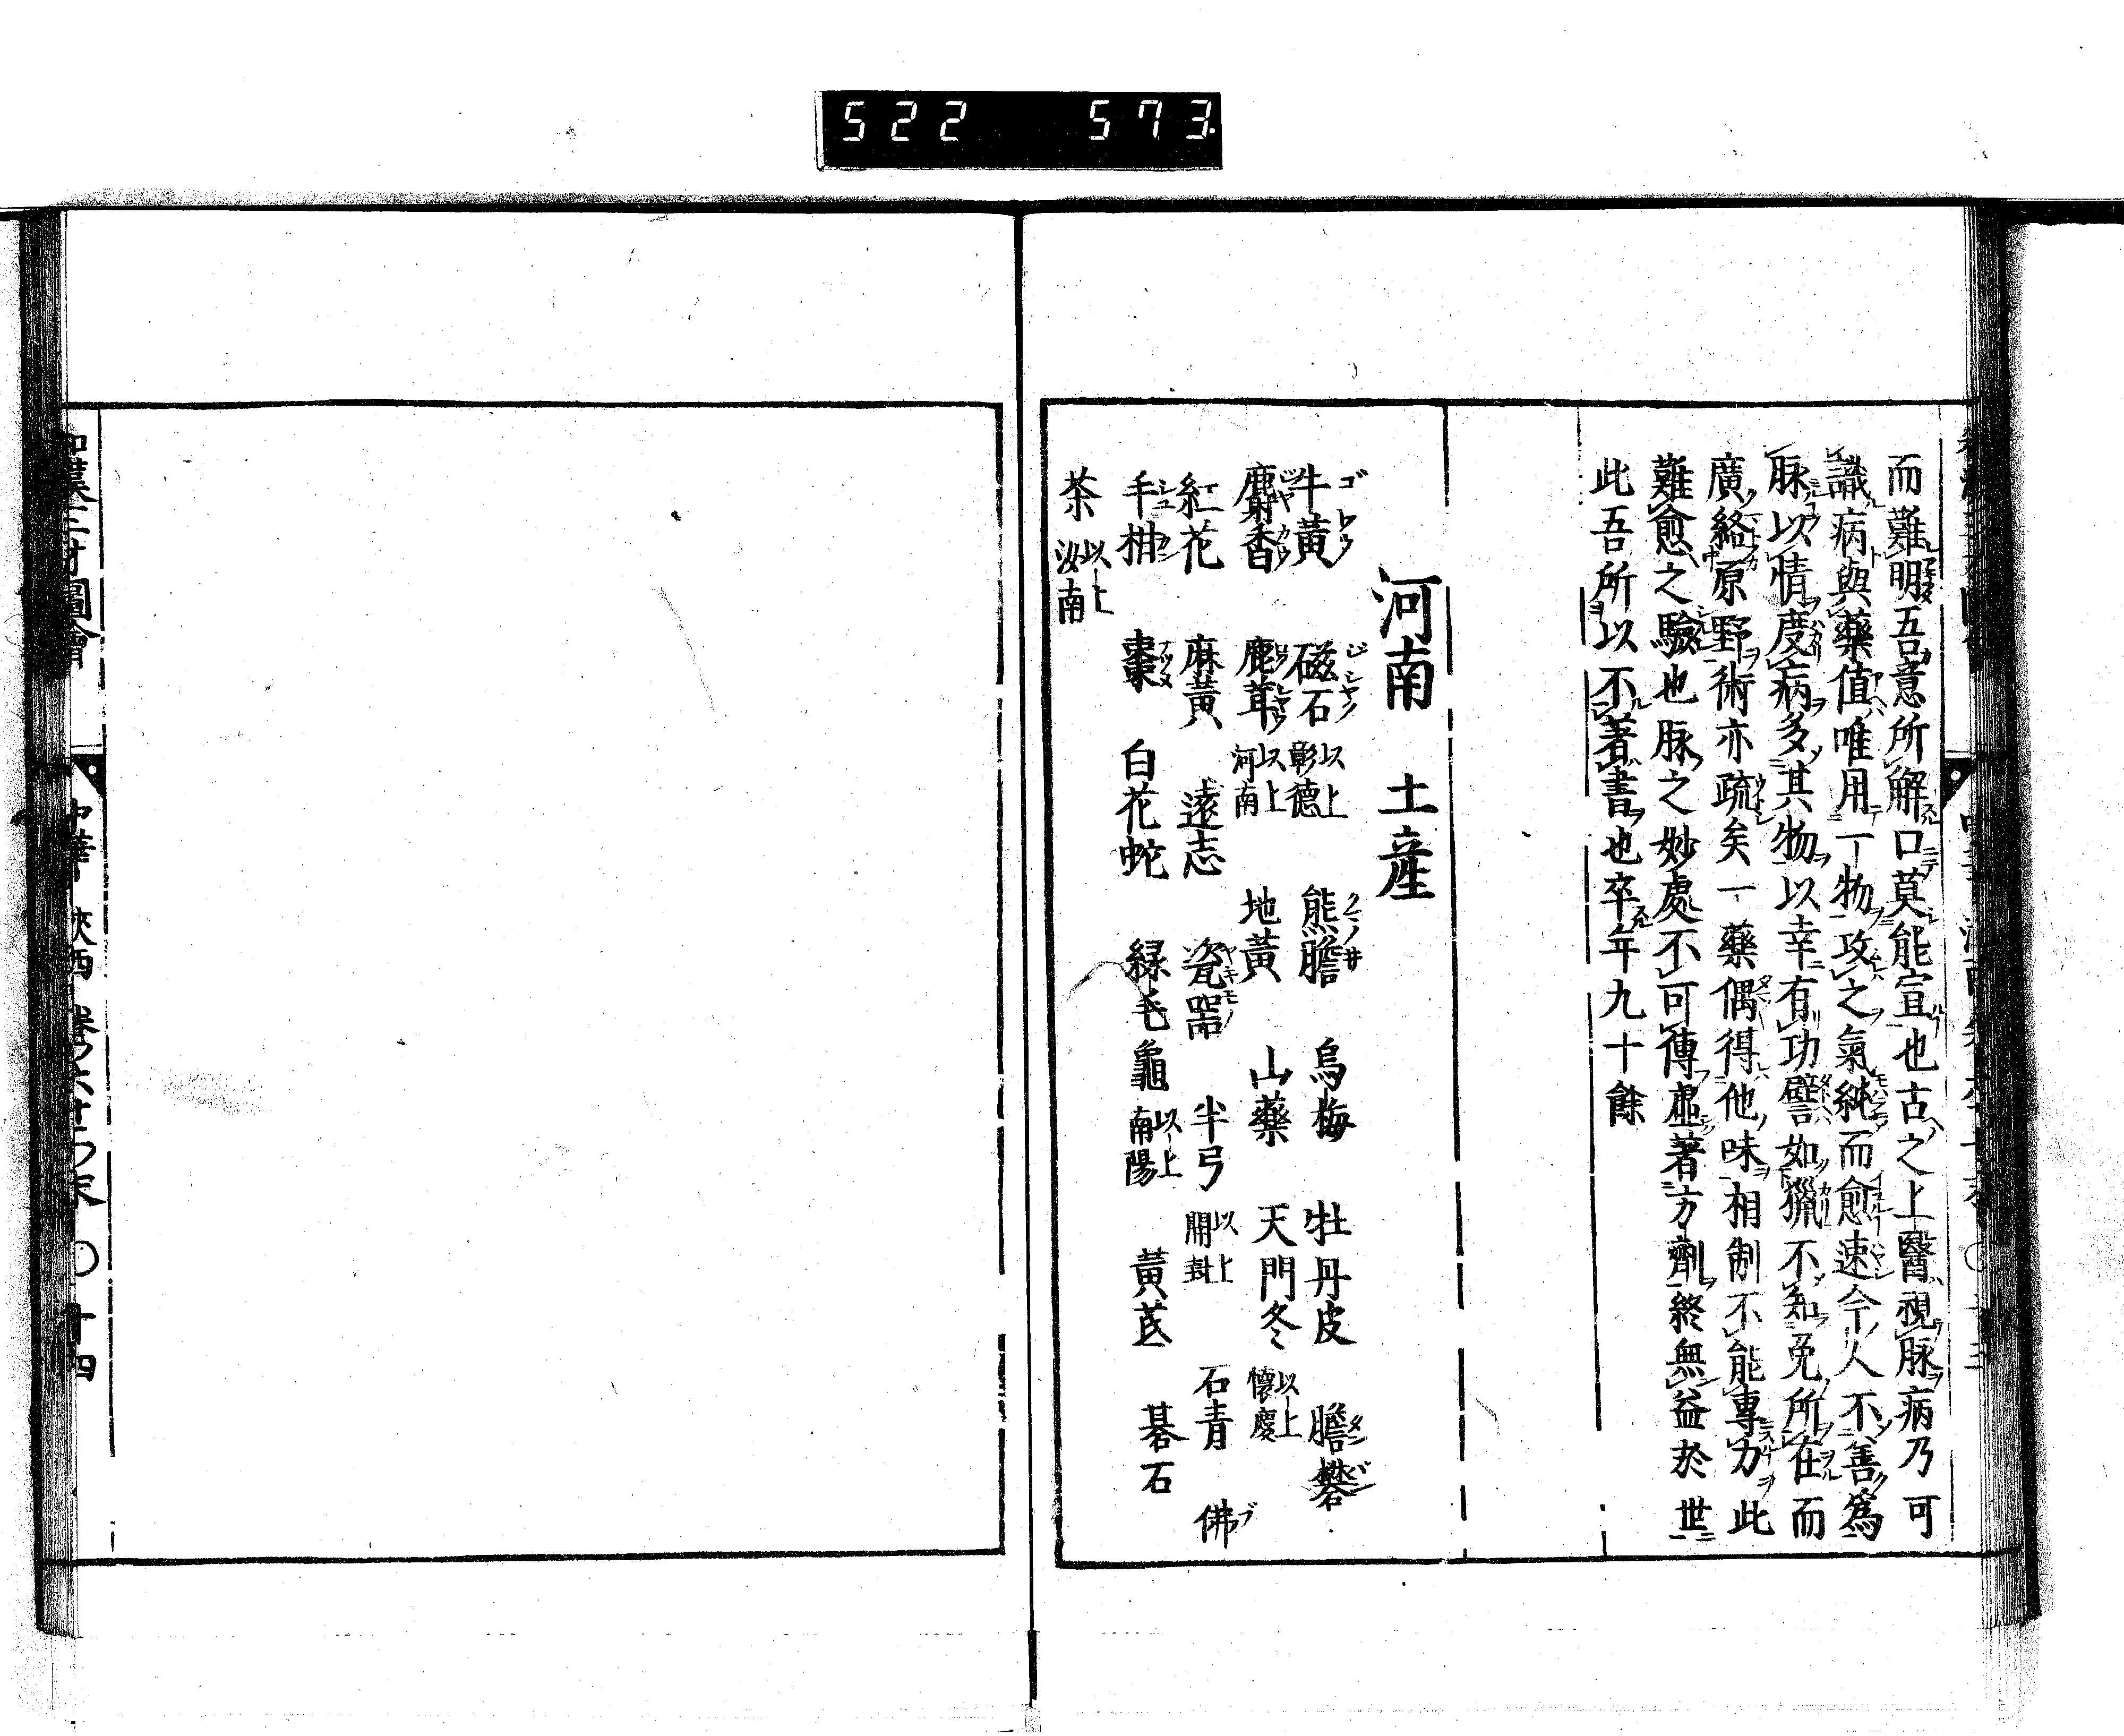 522 573
而難明吾意所解口莫能宣也古之上醫視脉病乃可
識病與藥值唯用一物攻之氣純而愈速今人不善為
脉以情度病多其物以幸有功譬如獵不知兔所在而
廣絡原野術亦疏矣一藥偶得他味相制不能專力此
難愈之驗也脉之妙處不可傳虛著方劑終無益於世
此吾所以不著書也卒年九十餘
河南 土産
牛黃 磁石 以上彰德 熊膽 烏梅 牡丹皮 膽礬
麝香 鹿茸 以上河南 地黃 山藥 天門冬 以上懷慶
紅花 麻黃 遠志 瓷器 半弓 以上開封 石青 佛
手柑 棗 白花蛇 緑毛龜 以上南陽 黃芪 碁石
茶 以上汝南
和漢三才圖會 中華 陜西 卷ノ六十二ノ末 〇十四